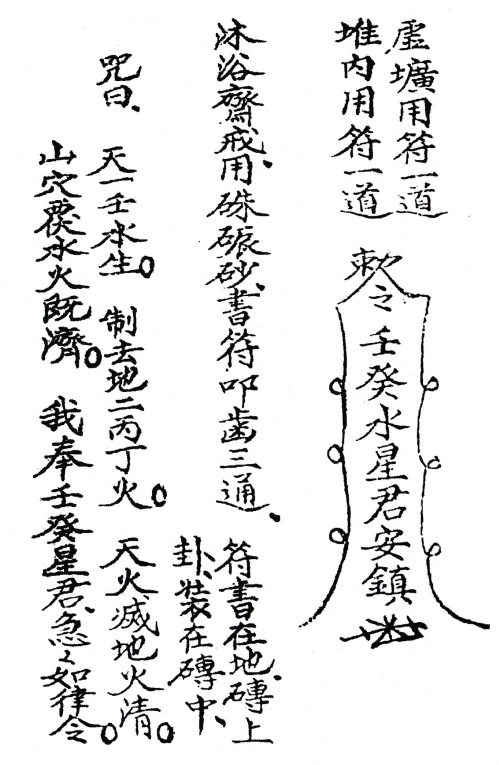 虛壙用符一道
堆內用符一道
敕令壬癸水星君安鎮
沐浴齋戒、用硃砂、書符叩齒三通、
符書在地磚上
卦、裝在磚中、
咒曰、天一壬水生。制去地二丙丁火。天火滅地火清。
山穴發水火既濟。我奉壬癸星君急々如律令。